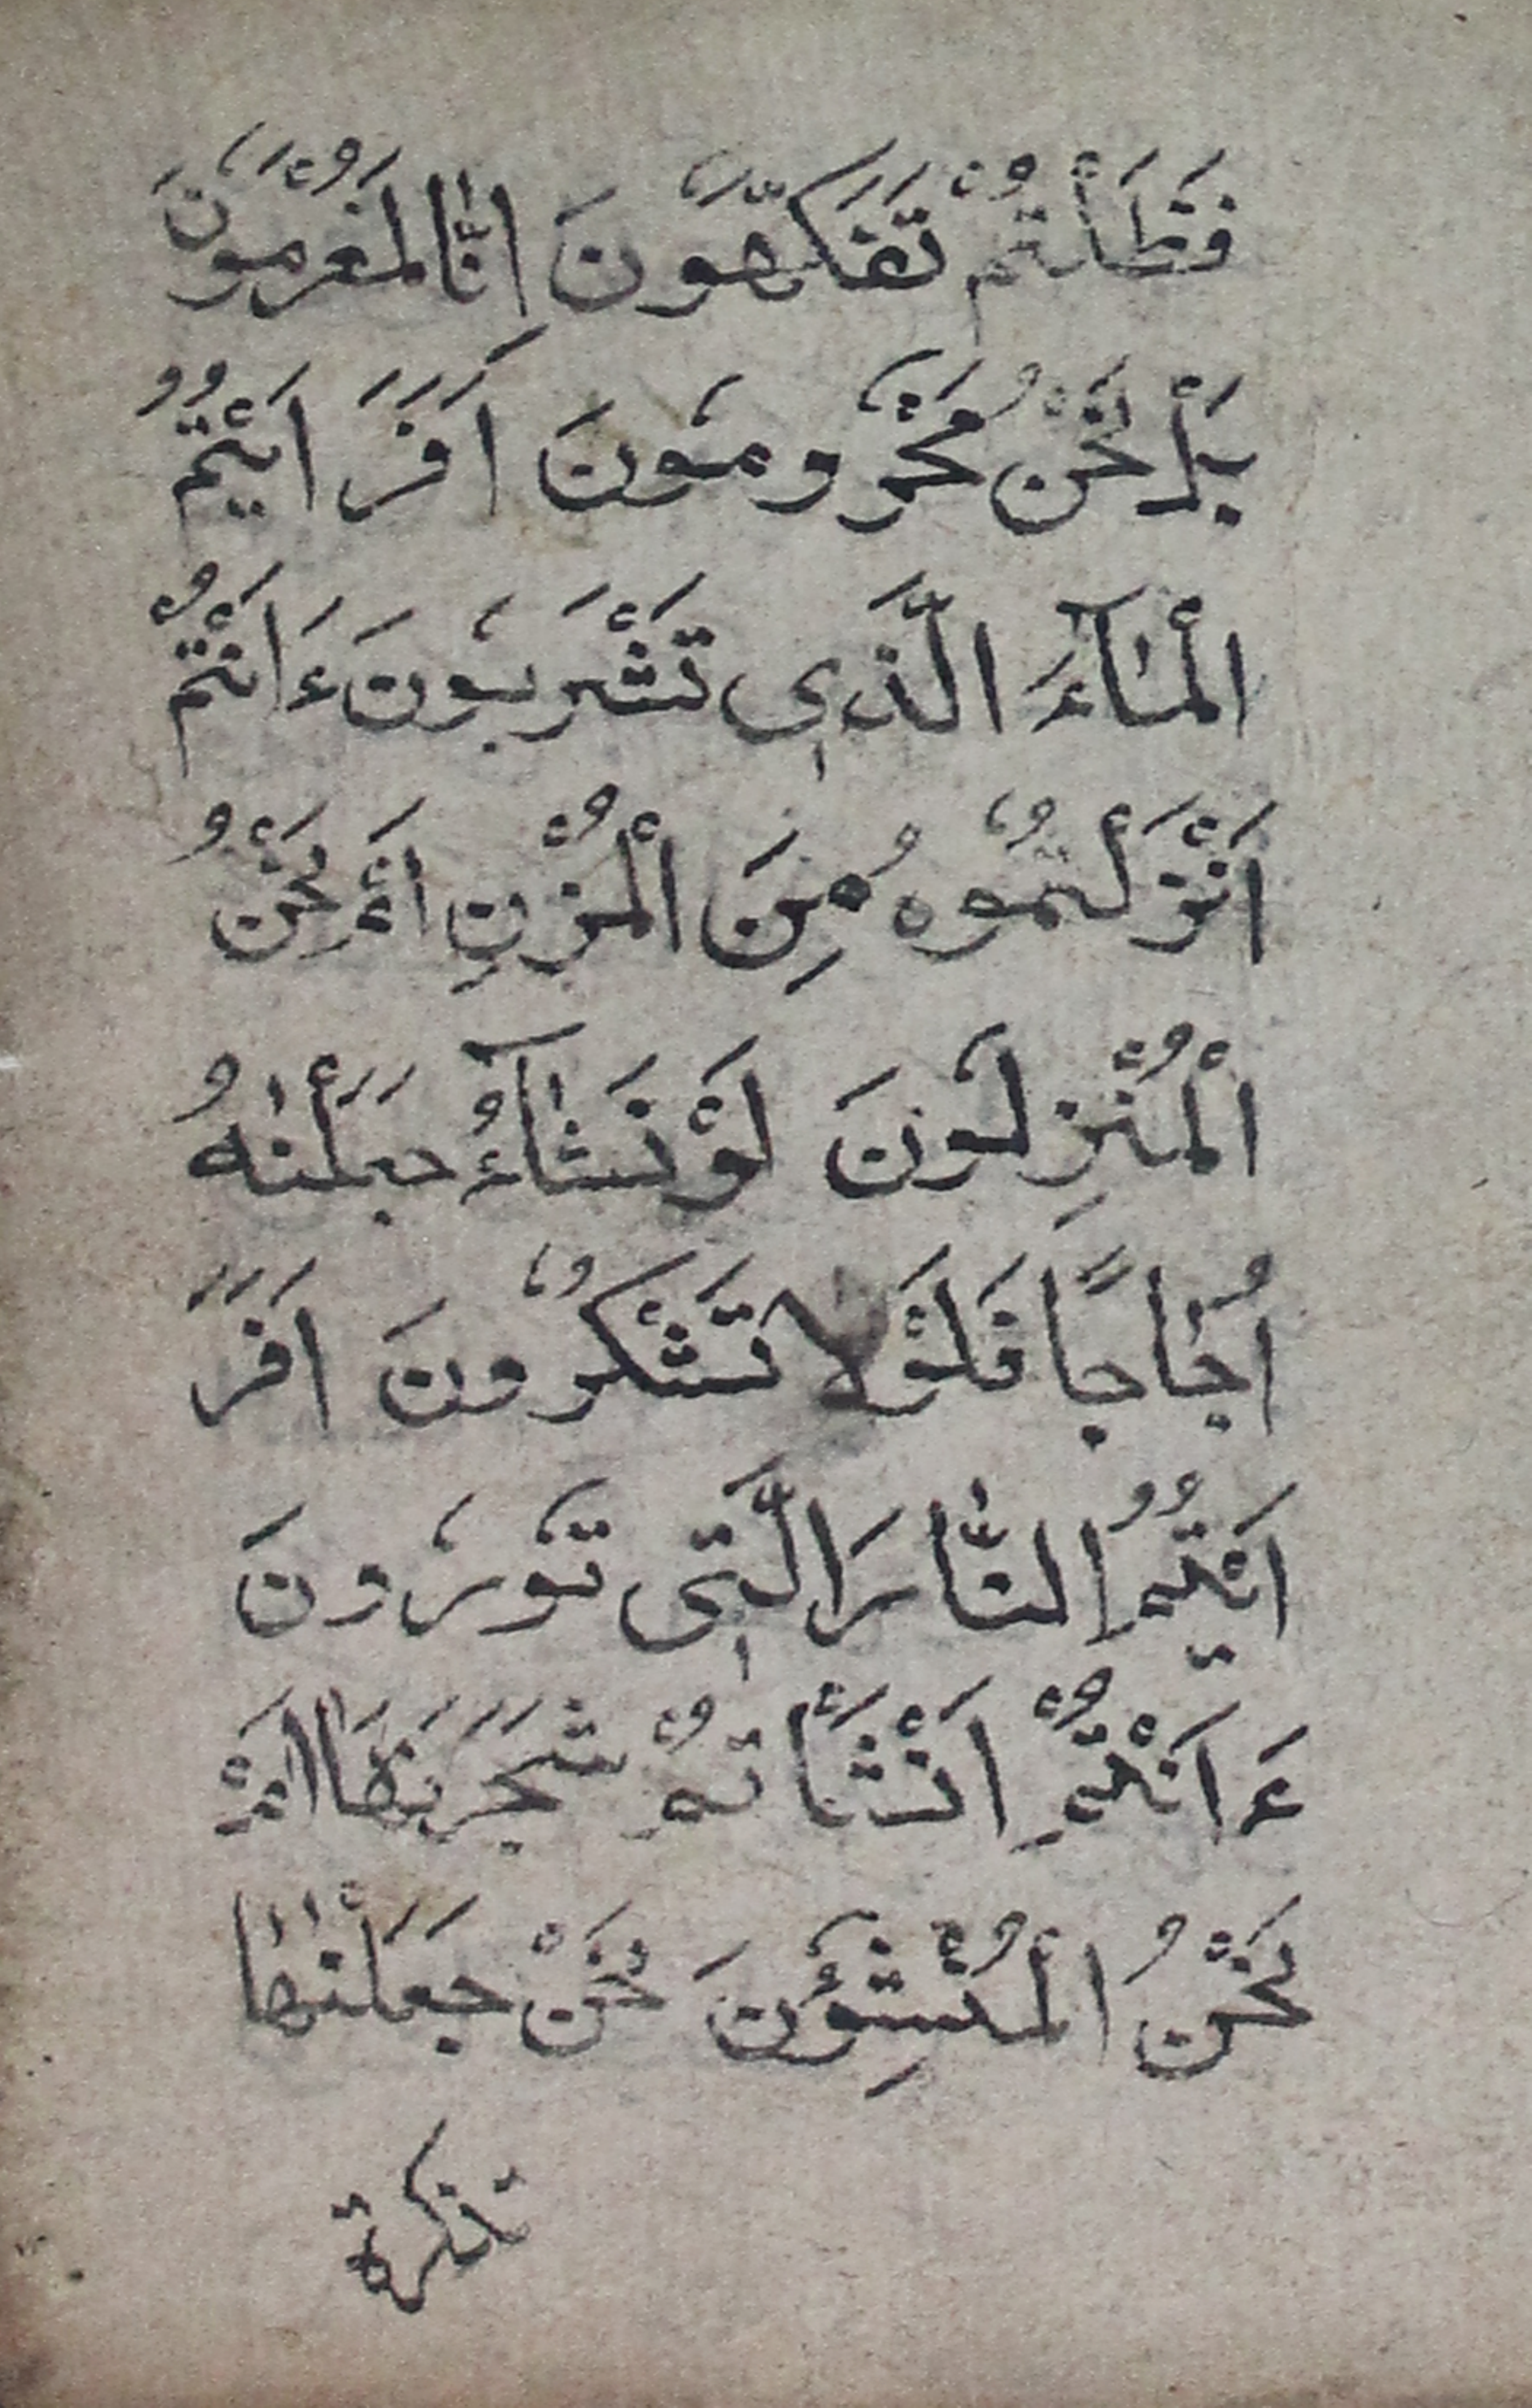 فَظَلْتُمْ تَفَكَّهُونَ اِنَّا لَمُغْرَمُونَ
بَلْ نَحْنُ مَحْرُومُونَ اَفَرَ اَيْتُمُ
الْمَآءَ الَّذٖى تَشْرَبُونَ ءَاَنْتُمْ
اَنْزَلْتُمُوهُ مِنَ الْمُزْنِ اَمْ نَحْنُ
الْمُنْزِلُونَ لَوْ نَشَآءُ جَعَلْنٰهُ
اُجَاجًا فَلَوْلَا تَشْكُرُونَ اَفَرَ
اَيْتُمُ النَّارَ الَّتٖى تُورُونَ
ءَاَنْتُمْ اَنْشَأْتُمْ شَجَرَتَهَا اَمْ
نَحْنُ الْمُنْشِؤُنَ نَحْنُ جَعَلْنٰهَا
تذكرة